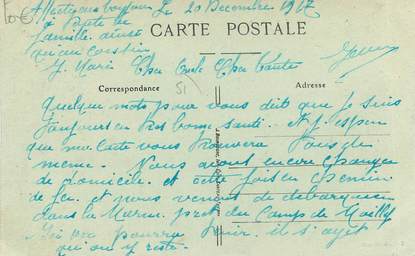 Affectueux bonjour Le 20 Decembre 1917
a toute la
famille ainsi
qu'au cousin
J. Marie
CARTE POSTALE
Cher Oncle Cher Tante
Correspondance
Adresse
51
Quelque mots pour vous dire que je suis
toujours en tres bonne santé. Et j'espere
que ma carte vous trouvera tous de
meme. Nous avons encore changer
de domicile. et cette fois en chemin
de fer. et nous venons de debarquer
dans la Marne. pret du Camp de Mailly
pourra tenir. il s'agit
qu'on y reste.